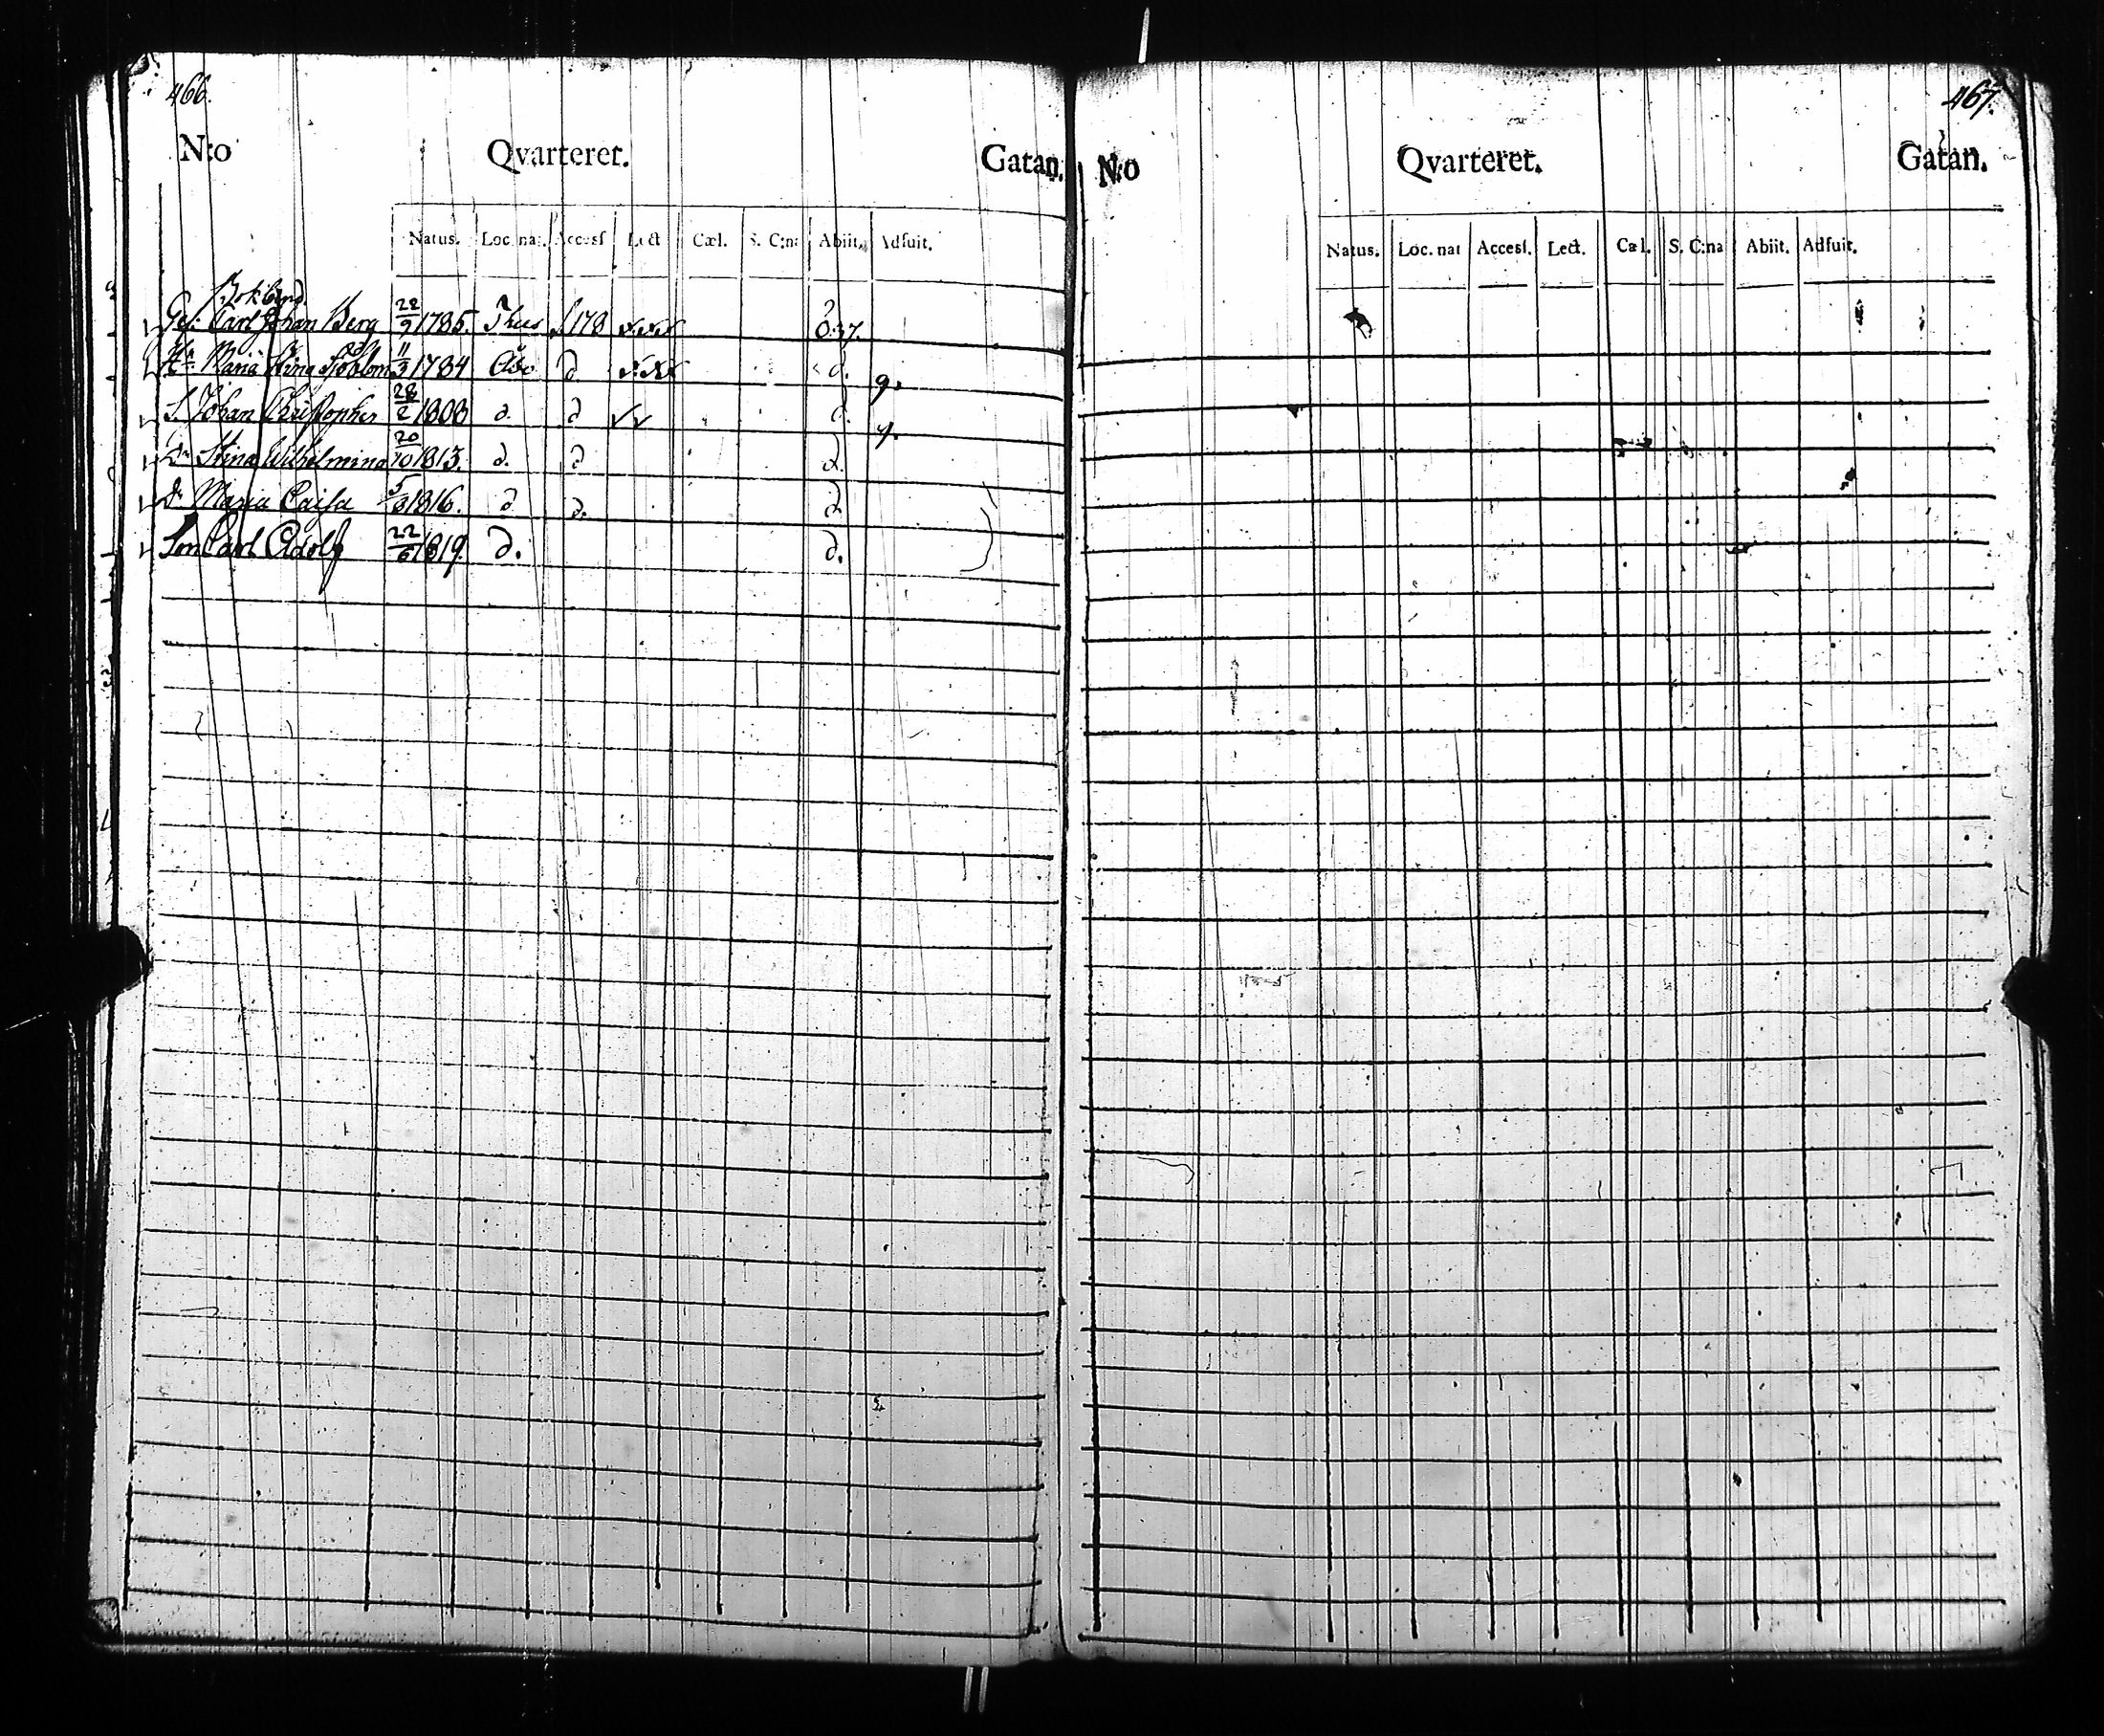 466.
N:o Qvarteret. Gatan.
Natus. Loc. nat. Access. Lect. Cæl. S. C:na Abiit. Adfuit.
Bokbind.
Ges: Carl Johan Berg 22/9 1785.
Maria Stina 11/3 1784 Åbo d.
S. Johan Christopher 1808 d. d d.
Dr Stina Wilhelmina 20/10 1813. d. d d.
Dr Maria Caisa 1816. d d. d.
Son Carl Adolf 22/6 1819. d. d.
467.
N:o Qvarteret. Gatan.
Natus. Loc. nat Access. Lect. Cæl. S. C:na Abiit. Adfuit.